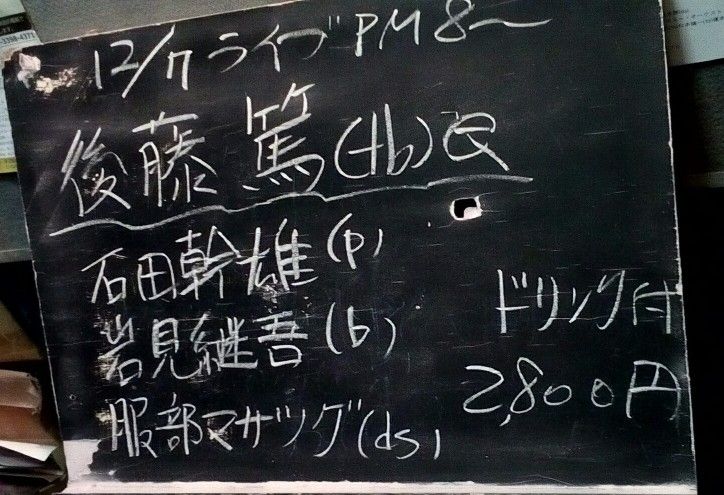 12/7 ライブ PM 8～
後藤 篤(tb)Q
石田幹雄(p)
岩見継吾(b)
服部マサツグ(ds)
ドリンク付
2,800円
3398-4371